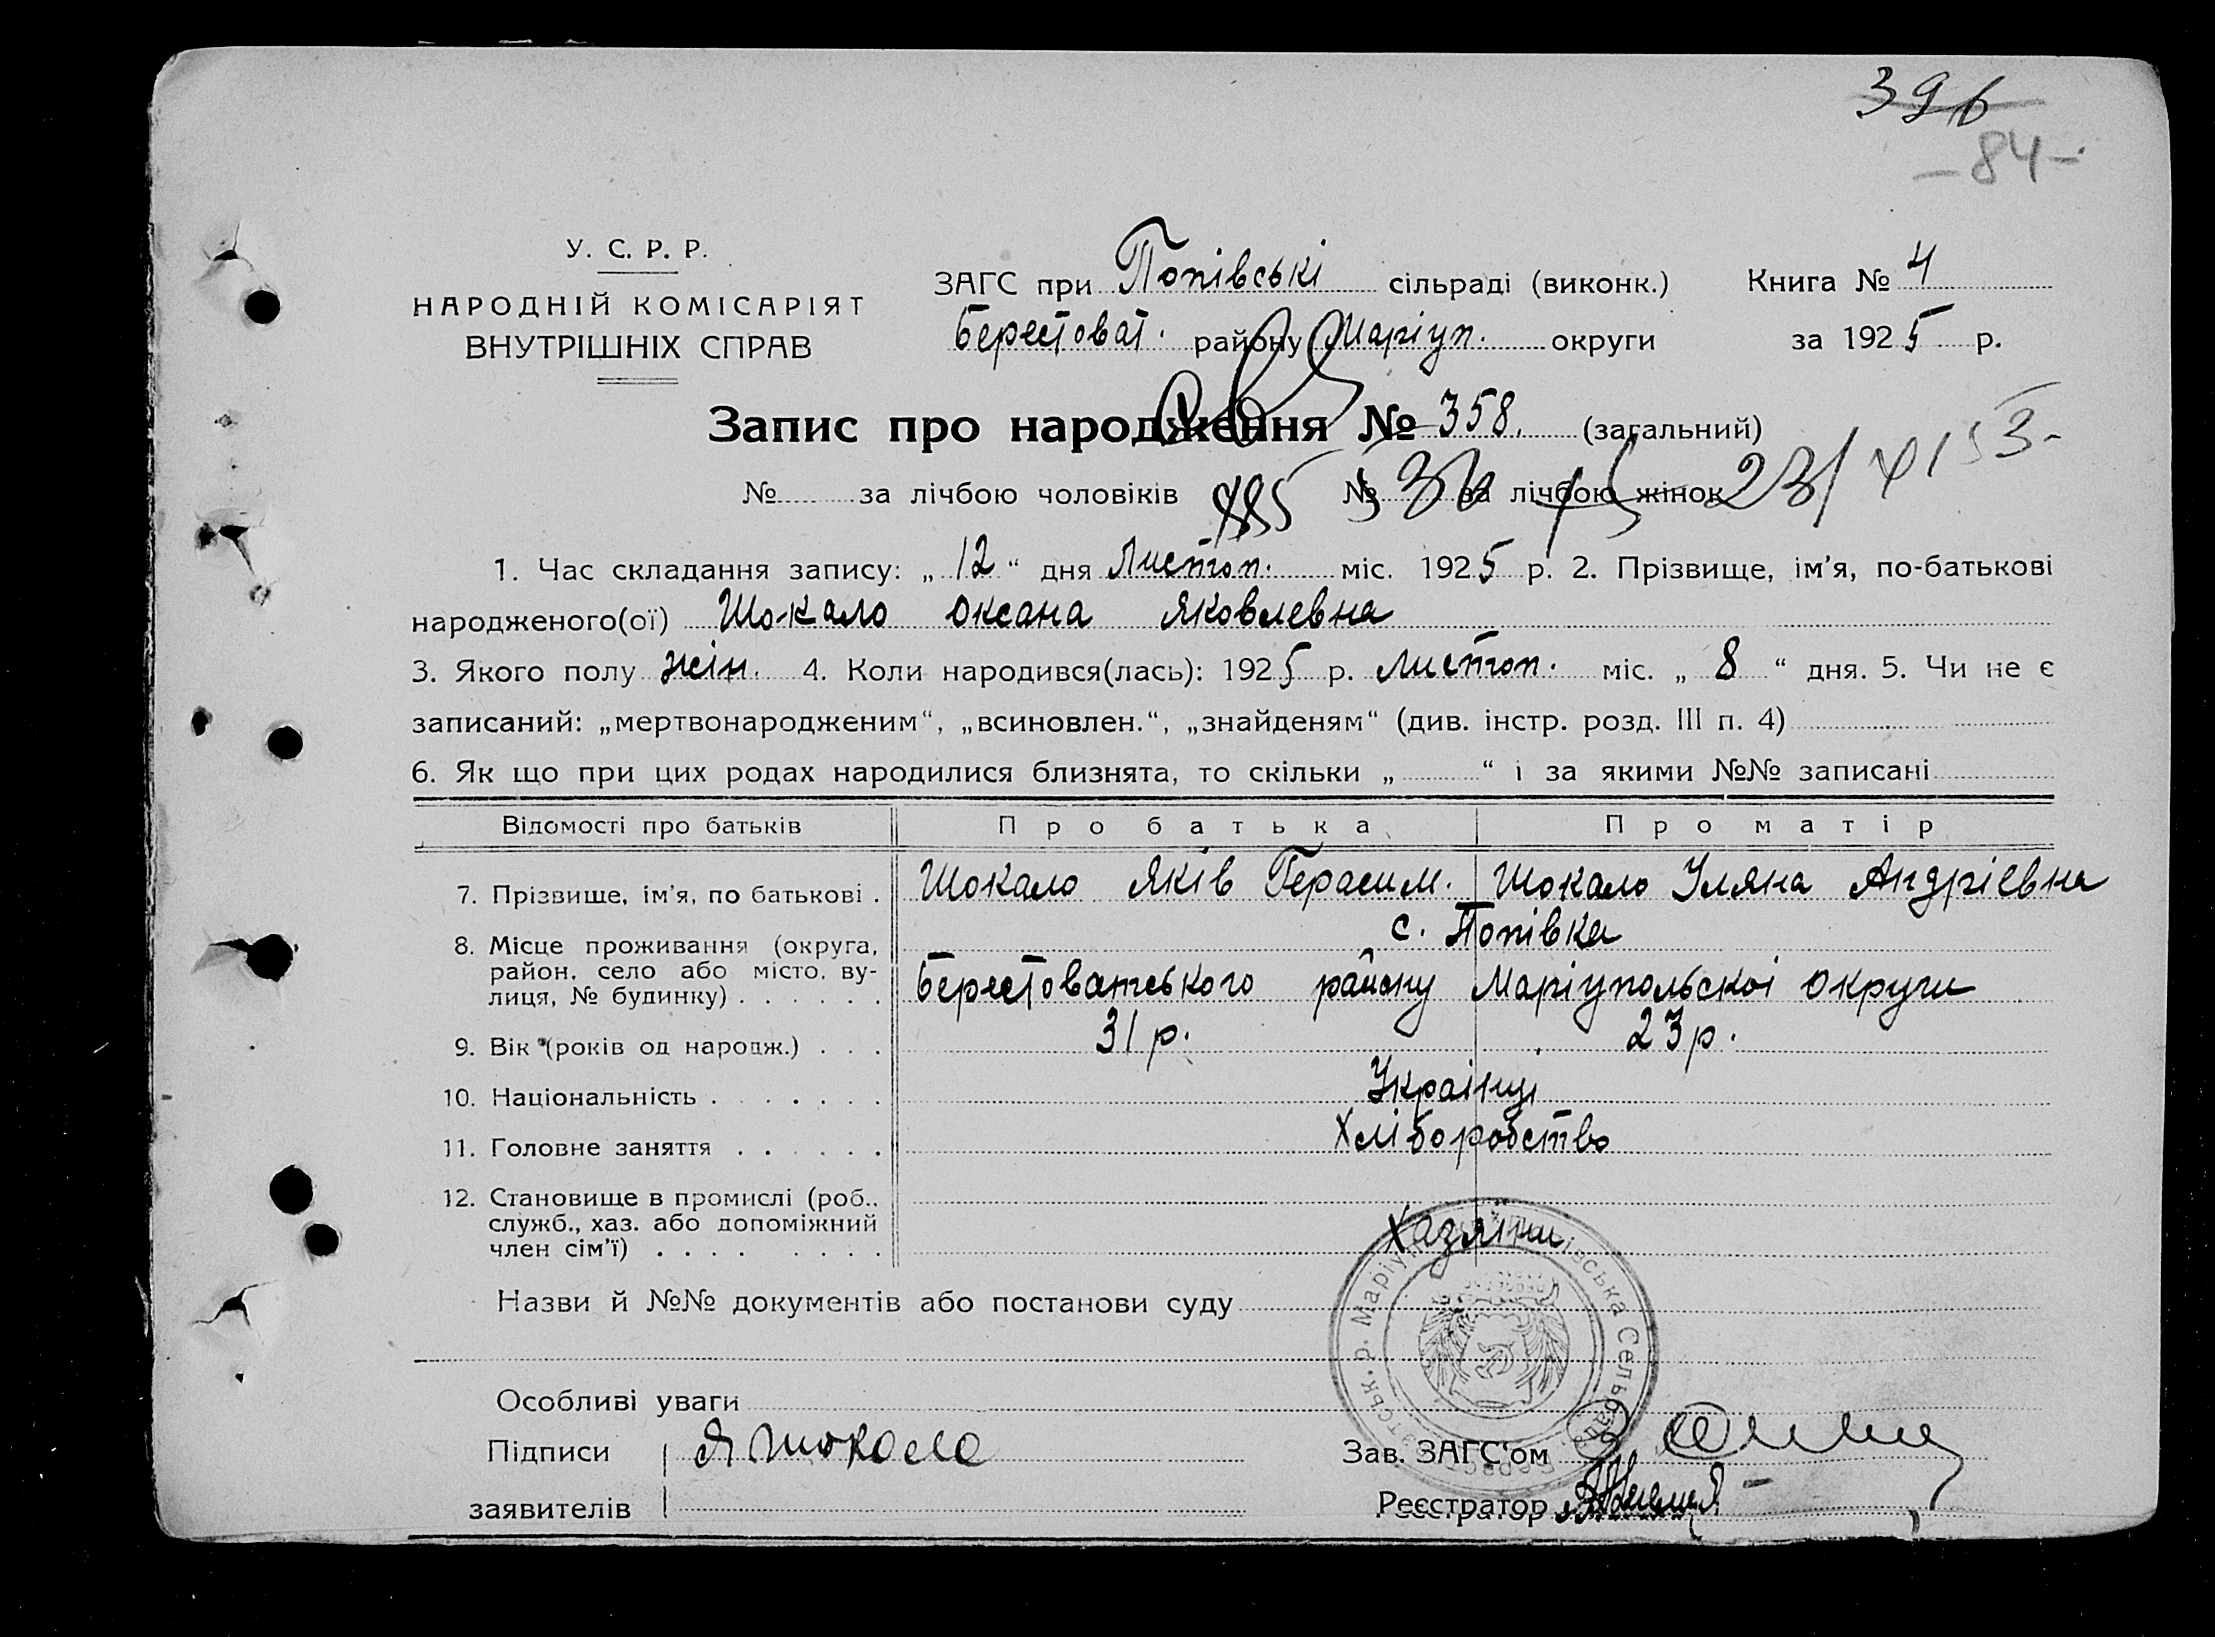 396
-84-
У. С. Р. Р.
НАРОДНІЙ КОМІСАРІЯТ
ВНУТРІШНІХ СПРАВ
ЗАГС при Попівські сільраді (виконк.) Книга № 4
Берестоват. району Маріуп. округи за 1925 р.
Запис про народження № 358. (загальний)
№ за лічбою чоловіків № за лічбою жінок
1. Час складання запису: „12“ дня Листоп. міс. 1925 р. 2. Прізвище, ім’я, по-батькові
народженого(ої) Шокало Оксана Яковлевна
3. Якого полу жін. 4. Коли народився(лась): 1925 р. Листоп. міс. „8“ дня. 5. Чи не є
записаний: „мертвонародженим“, „всиновлен.“, „знайденям“ (див. інстр. розд. III п. 4)
6. Як що при цих родах народилися близнята, то скільки „ “ і за якими №№ записані
Відомості про батьків Про батька Про матір
7. Прізвище, ім’я, по батькові . Шокало Яків Герасим. Шокало Уляна Андріевна
8. Місце проживання (округа, с. Попівка
район, село або місто, ву-
лиця, № будинку) . . . . . . Берестоватського району Маріупольскоі округи
9. Вік (років од народж.) . . . 31 р. 23 р.
10. Національність . . . . . . . Украінці
11. Головне заняття . . . . . . Хліборобство
12. Становище в промислі (роб.,
служб., хаз. або допоміжний
член сім’ї) . . . . . . . . Хазяіни
Назви й №№ документів або постанови суду
Особливі уваги
Підписи Я Шокало Зав. ЗАГС‘ом
заявителів Реєстратор